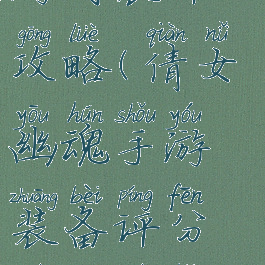 gōng lüè qiàn nǚ
攻略(倩女
yōu hún shǒu yóu
幽魂手游
zhuāng bèi píng fēn
装备评分